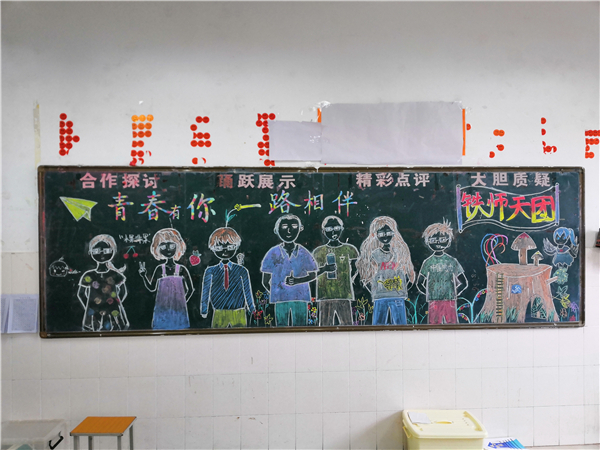 合作探讨 踊跃展示 精彩点评 大胆质疑
青春有你 一路相伴
铁师天团